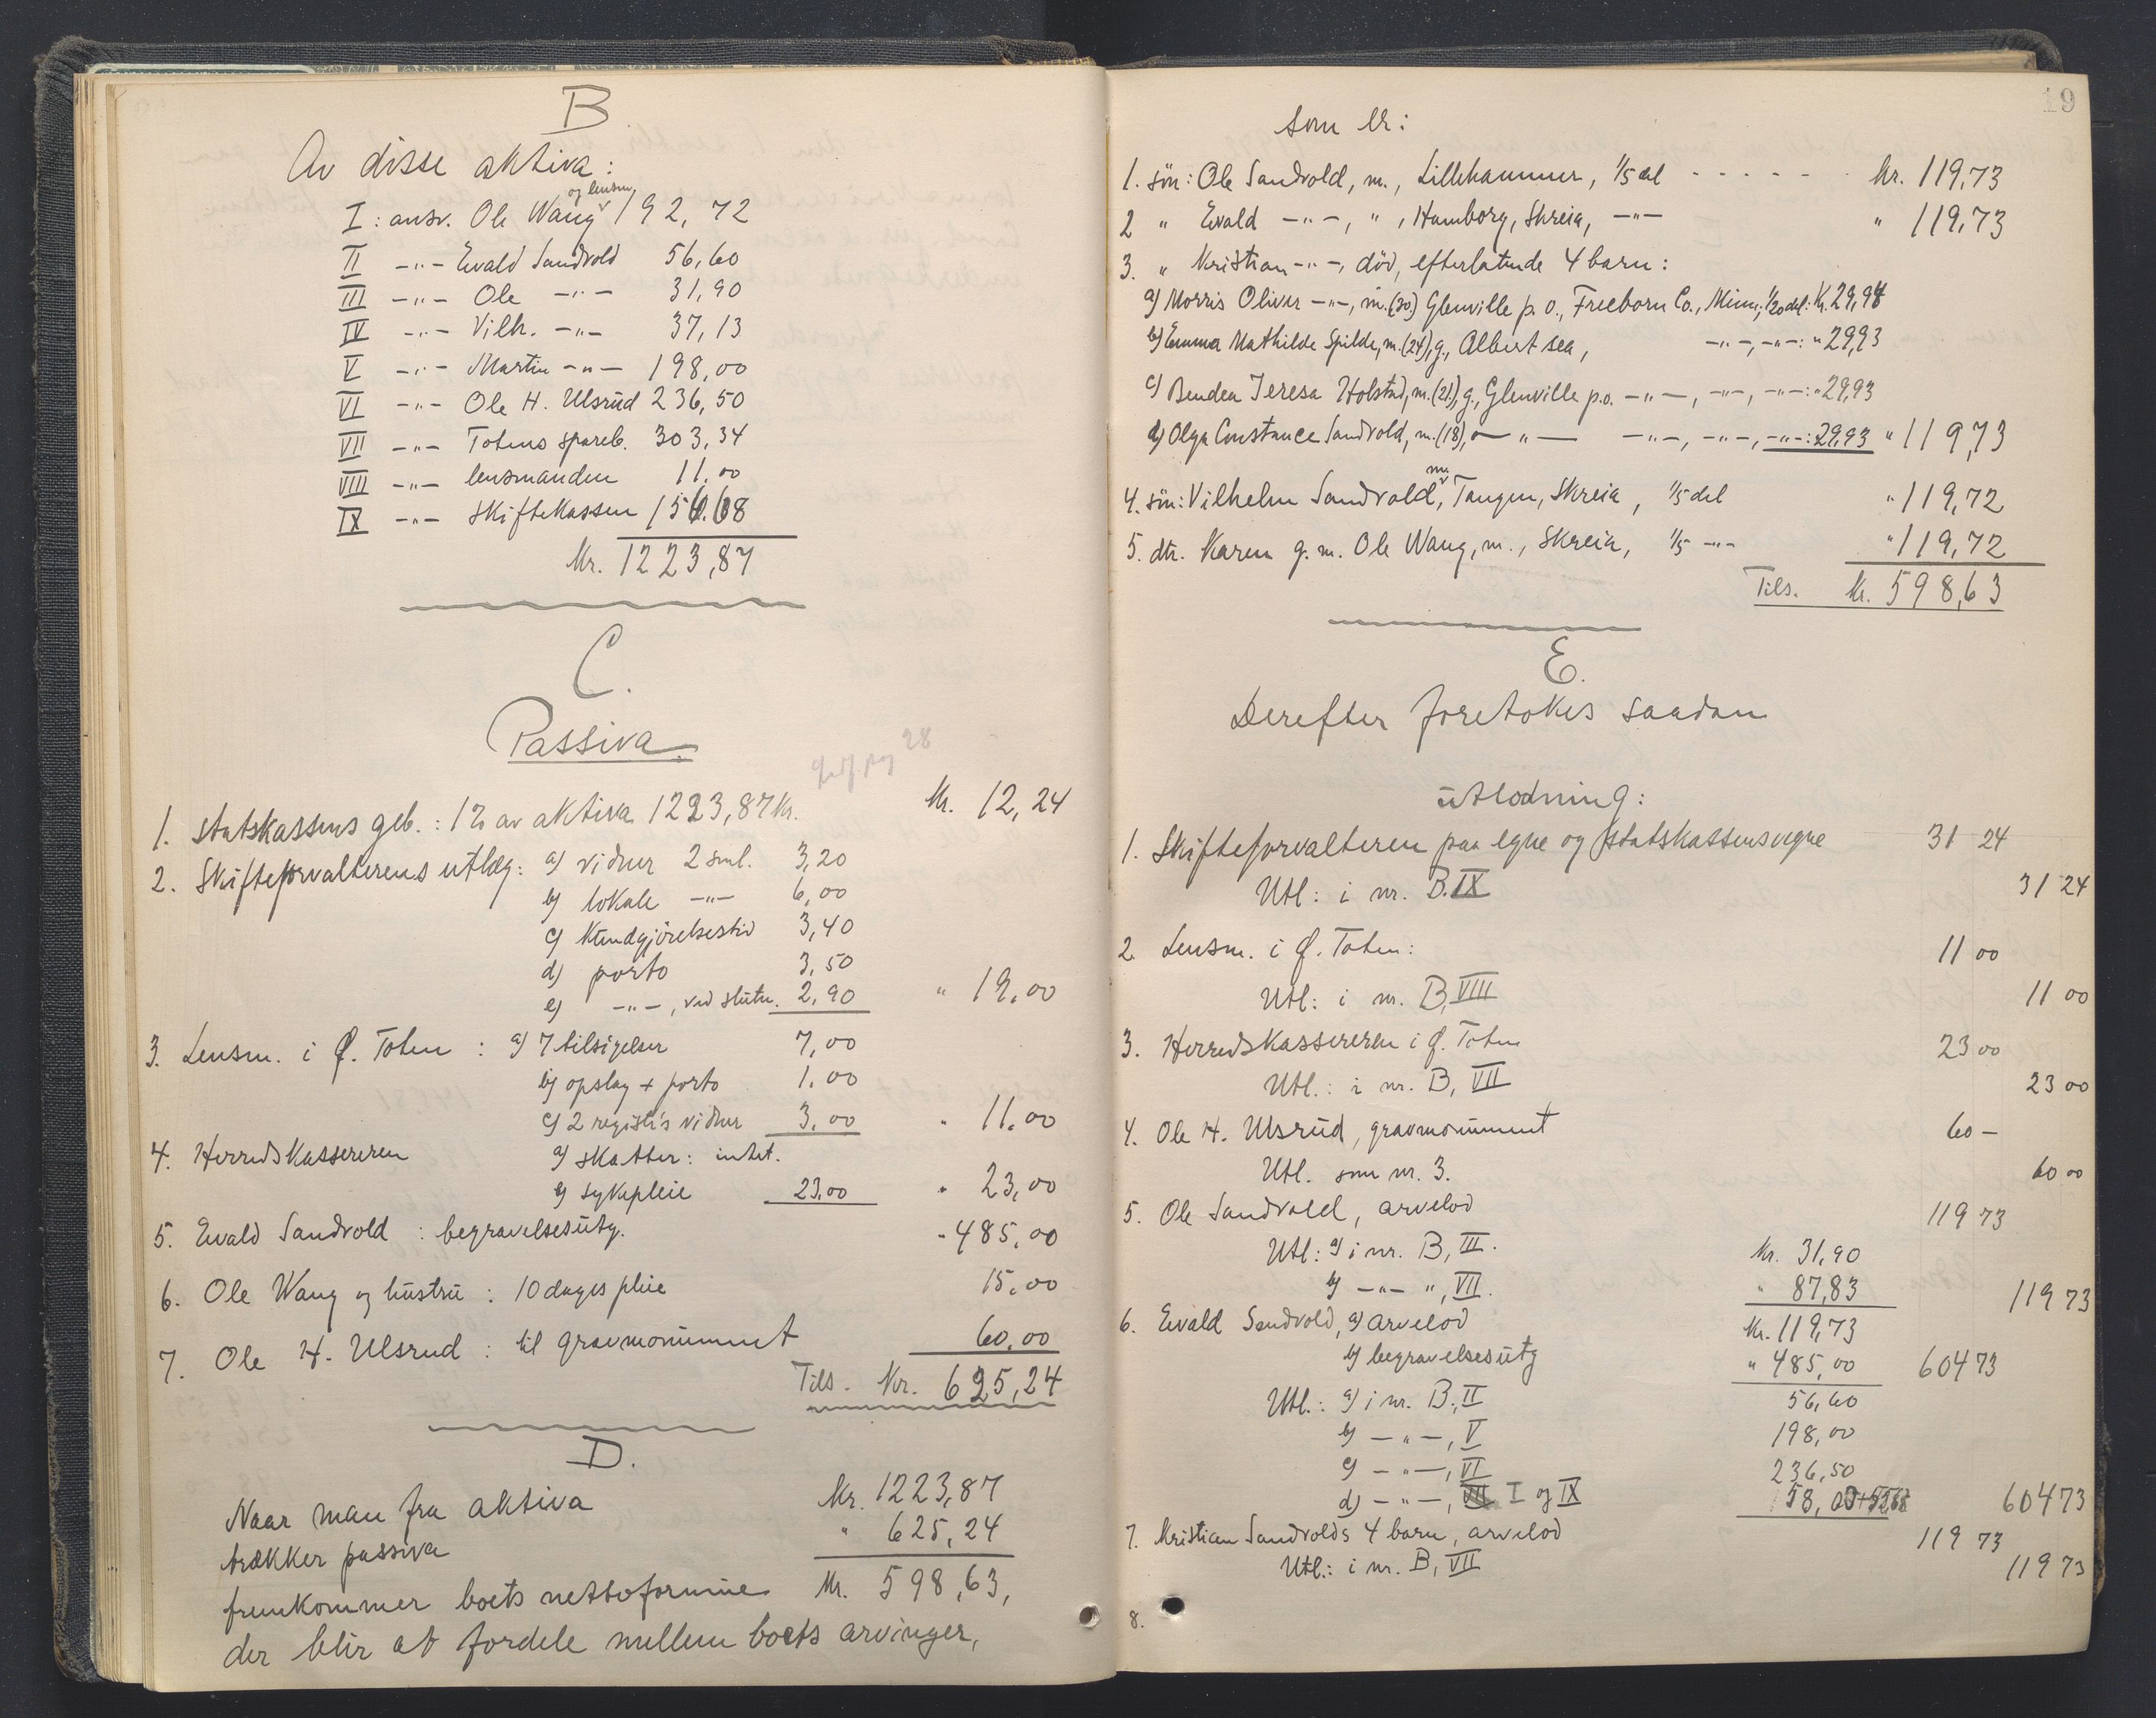 B
Av disse aktiva:
og lensm.
I: ansv. Ole Wang 192,72
II -"- Evald Sandvold 56,60
III -"- Ole -"- 31,90
IV -"- Vilh. -"- 37,13
V -"- Martin -"- 198,00
VI -"- Ole H. Ulsrud 236,50
VII -"- Totens spareb. 303,34
VIII -"- lensmanden 11.00
IX -"- Skiftekassen 156.68
Kr. 1223,87
C.
Passiva
28
1. Statskassens geb.: 1% av aktiva 1223,87 kr. Kr. 12,24
2. Skifteforvalterens utlæg: a) vidner 2 sml. 3,20
b) lokale -"- 6,00
c) Kundgjørelsestid 3,40
d) porto 3,50
e) -"-, ved slutn. 2,90 " 19.00
3. Lensm. i Ø. Toten : a) 7 tilsigelser 7,00
b) opslag + porto 1.00
c) 2 registr's vidner 3,00 " 11.00
4. Herredskassereren a) skatter: intet.
b) sykepleie 23,00 " 23,00
5. Evald Sandvold : begravelsesutg. - 485,00
6. Ole Wang og hustru : 10 dages pleie 15.00
7. Ole H. Ulsrud : til gravmonument 60,00
Tils. Kr. 625,24
D.
Naar man fra aktiva Kr. 1223,87
trækker passiva " 625,24
fremkommer boets nettoformue Kr. 598,63,
der blir at fordele mellem boets arvinger,
19
som er:
1. søn: Ole Sandvold, m., Lillehammer, 1/5 del - - - - - - kr. 119,73
2 " Evald -"-, ", Hamborg, Skreia, -"- " 119,73
3. " Kristian -"-, død, efterlatende 4 barn:
a) Morris Oliver -"-, m. (30.) Glenville p. o., Freeborn Co., Minn; 1/20 del: Kr. 29,94
b) Emma Mathilde Spilde, m. (24), g., Albert sea, -"-, -"-: " 29,93
c) Bendea Teresa Holstad, m. (21.), g., Glenville p.o. -"-, -"-, -"-: " 29,93
d) Olga Constance Sandvold, m. (18), - " - -"-, -"-, -"-: 29,93 " 119,73
m.
4. søn: Vilhelm Sandvold, Tangen, Skreia, 1/5 del " 119,72
5. dtr. Karen g. m. Ole Wang, m., Skreia, 1/5 -"- " 119,72
Tils. Kr. 598,63
E.
Derefter foretokes saadan
utlodning:
1. Skifteforvalteren paa egne og statskassens vegne 31 24
Utl: i nr. B.IX 31 24
2. Lensm. i Ø. Toten: 11 00
Utl: i nr. B, VIII 11 00
3. Herredskassereren i Ø. Toten 23 00
Utl.: i nr. B, VII 23 00
4. Ole H. Ulsrud, gravmonument 60 -
Utl. som nr. 3. 60 00
5. Ole Sandvold, arvelod 119 73
Utl: a) i nr. B, III. Kr. 31,90
b) -"- ", VII. " 87,83 119 73
6. Evald Sandvold, a) arvelod Kr. 119,73
b) begravelsesutg " 485,00 604 73
Utl.: a) i nr. B., II 56,60
b) - " -, V 198,00
c) - " -, VI 236,50
d) - " -, I og IX 58,00 604 73
7. Kristian Sandvolds 4 barn, arvelod 119 73
Utl.: i nr. B, VII 119 73
8.